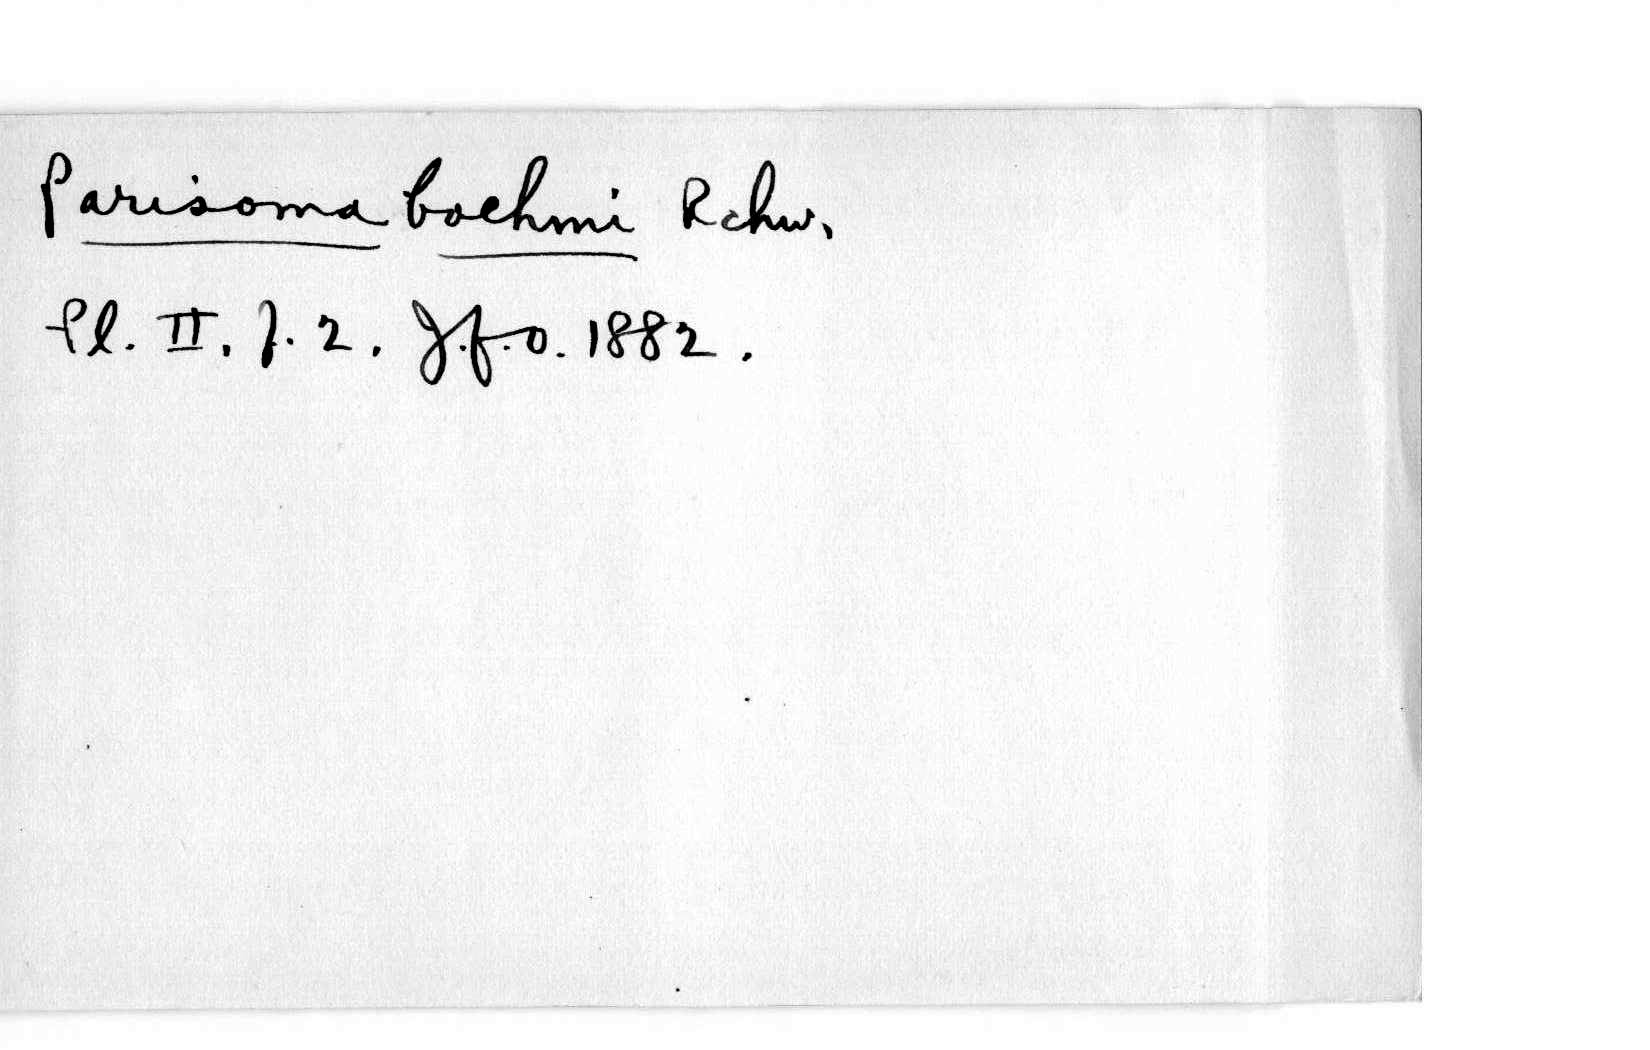 Parisoma boehmi Rchw.
Pl. II. f. 2. J.f.O. 1882.